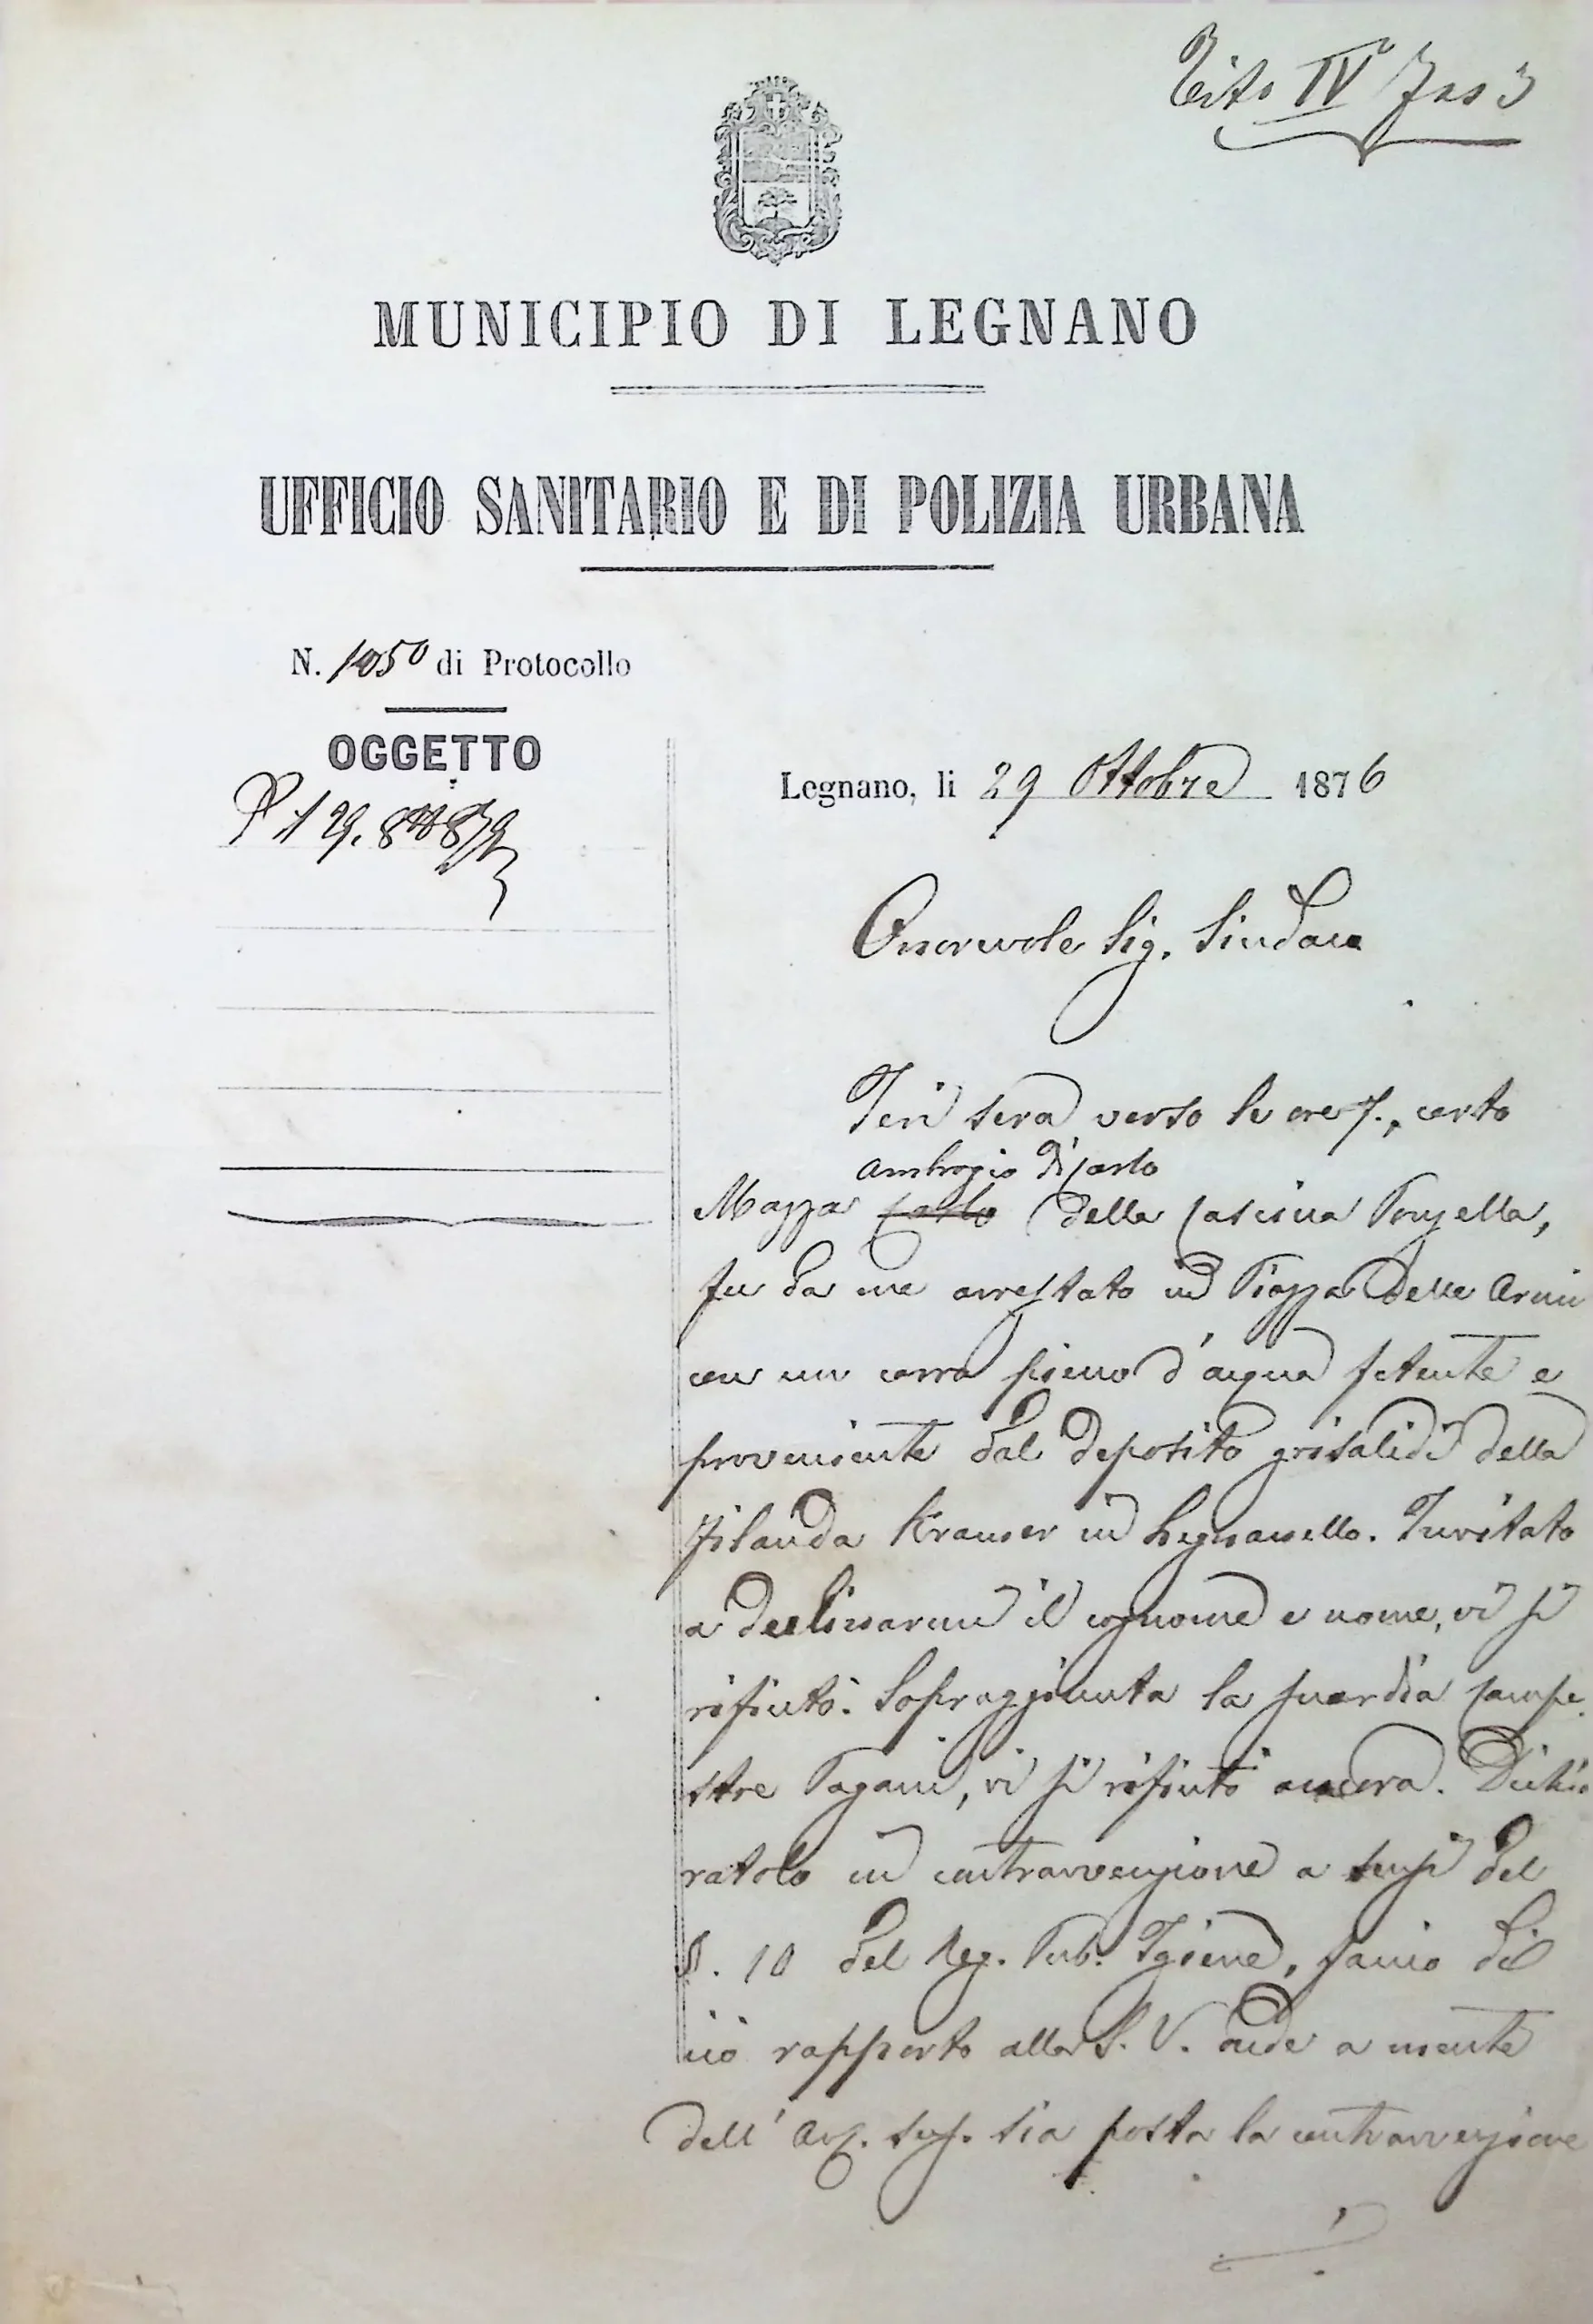 Tito IV Fas 3
MUNICIPIO DI LEGNANO
UFFICIO SANITARIO E DI POLIZIA URBANA
N. 1050 di Protocollo
OGGETTO
Legnano, li 29 Ottobre 1876
Onorevole Sig. Sindaco
Ieri sera verso le ore 7., certo
Ambrogio di Carlo
Mazza Carlo della Cascina Ponzella,
fu da me arrestato in Piazza delle Armi
con un carro pieno d'acqua fetente e
proveniente dal deposito grisalidi della
Filanda Krauser in Legnanello. Invitato
a declinarmi il cognome e nome, vi si
rifiutò. Sopraggiunta la guardia campe
stre Pagani, vi si rifiutò ancora. Dichia
ratolo in contravvenzione a sensi del
§. 10 del Reg. Pub. Igiene, faccio di
ciò rapporto alla S. V. onde a mente
dell' Art. sud. sia posta la contravvenzione